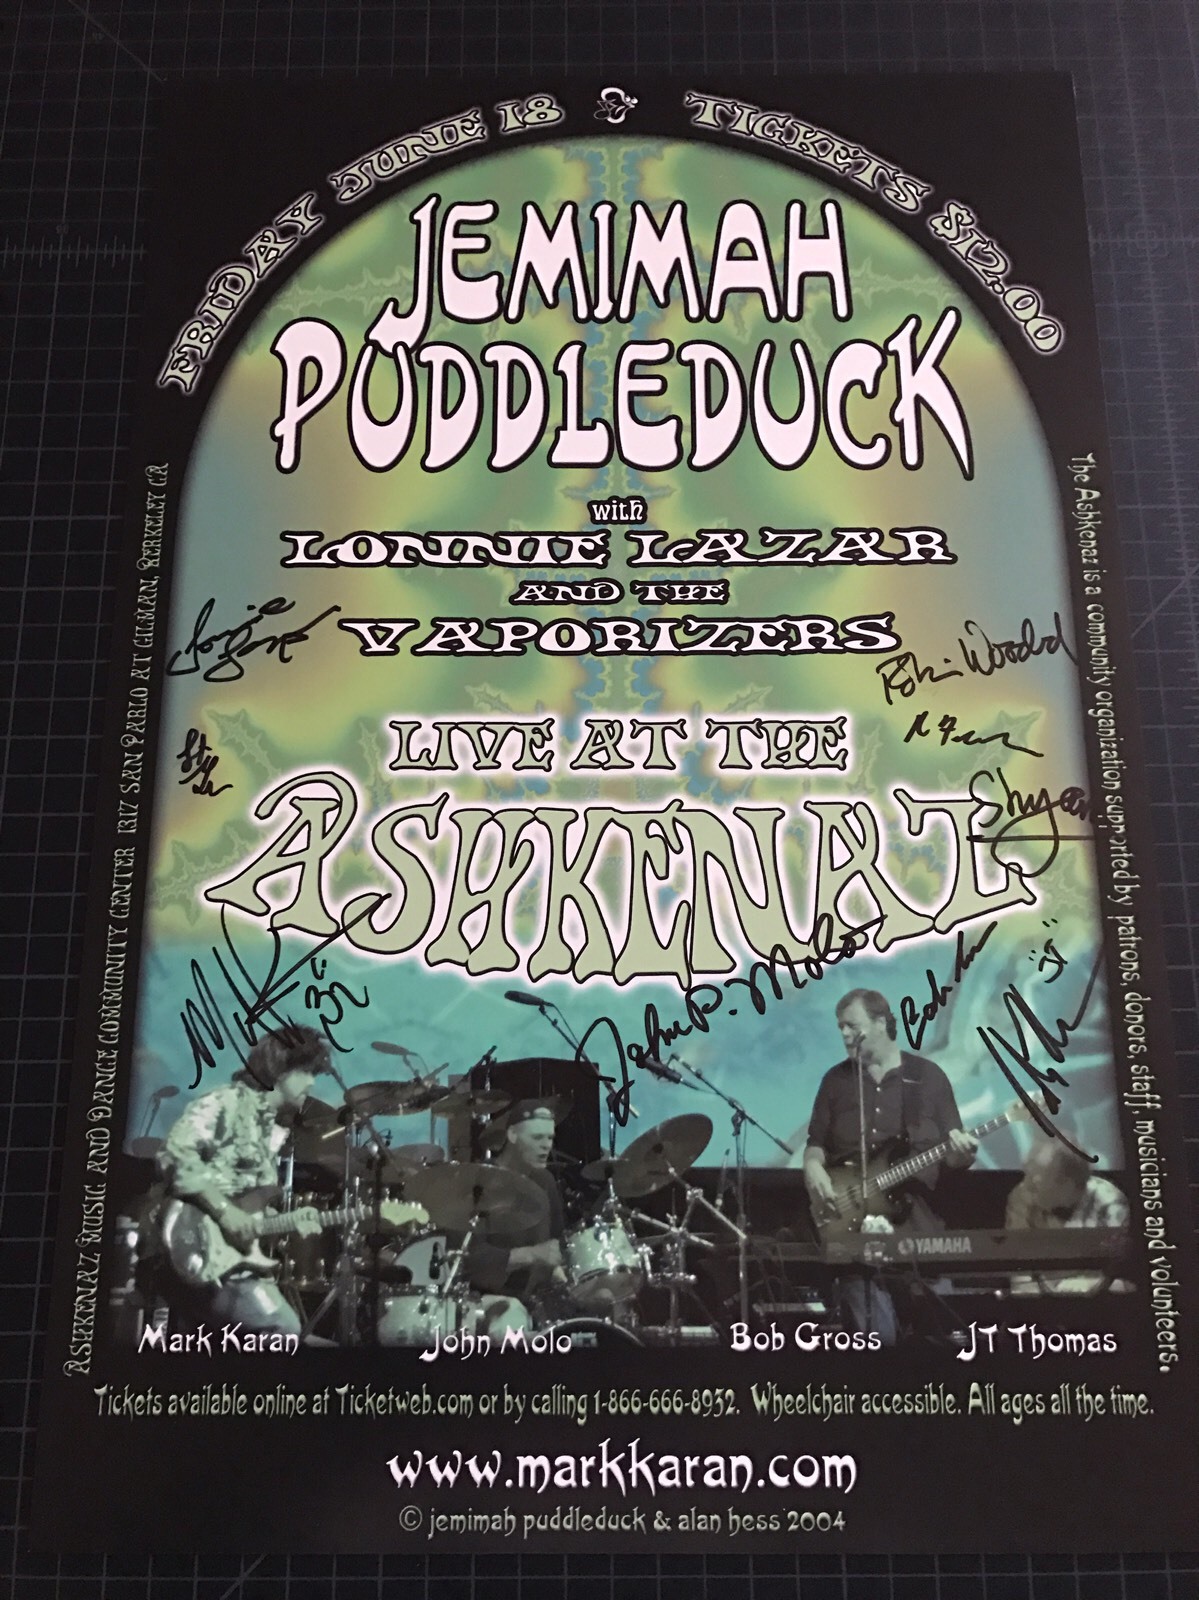 FRIDAY JUNE 18
TICKETS $12.00
JEMIMAH
PUDDLEDUCK
with
LONNIE LAZAR
AND THE
VAPORIZERS
LIVE AT THE
ASHKENAZ
ASHKENAZ MUSIC AND DANCE COMMUNITY CENTER 1317 SAN PABLO AT GILMAN, BERKELEY CA
The Ashkenaz is a community organization supported by patrons, donors, staff, musicians and volunteers.
Shyam
John P. Molo
"JT"
YAMAHA
Mark Karan
John Molo
Bob Gross
JT Thomas
Tickets available online at Ticketweb.com or by calling 1-866-666-8932. Wheelchair accessible. All ages all the time.
www.markkaran.com
© jemimah puddleduck & alan hess 2004